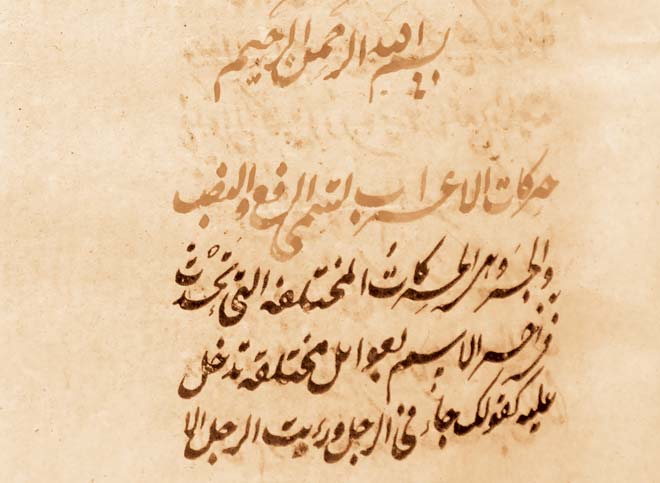 بسم الله الرحمن الرحيم
حركات الاعراب لتسمى الرفع والنصب
والجر وهى الحركات المختلفه التى تحدث
فى آخر الاسم بعوامل مختلفه تدخل
عليه كقولك جاءنى الرجل ورايت الرجل الا